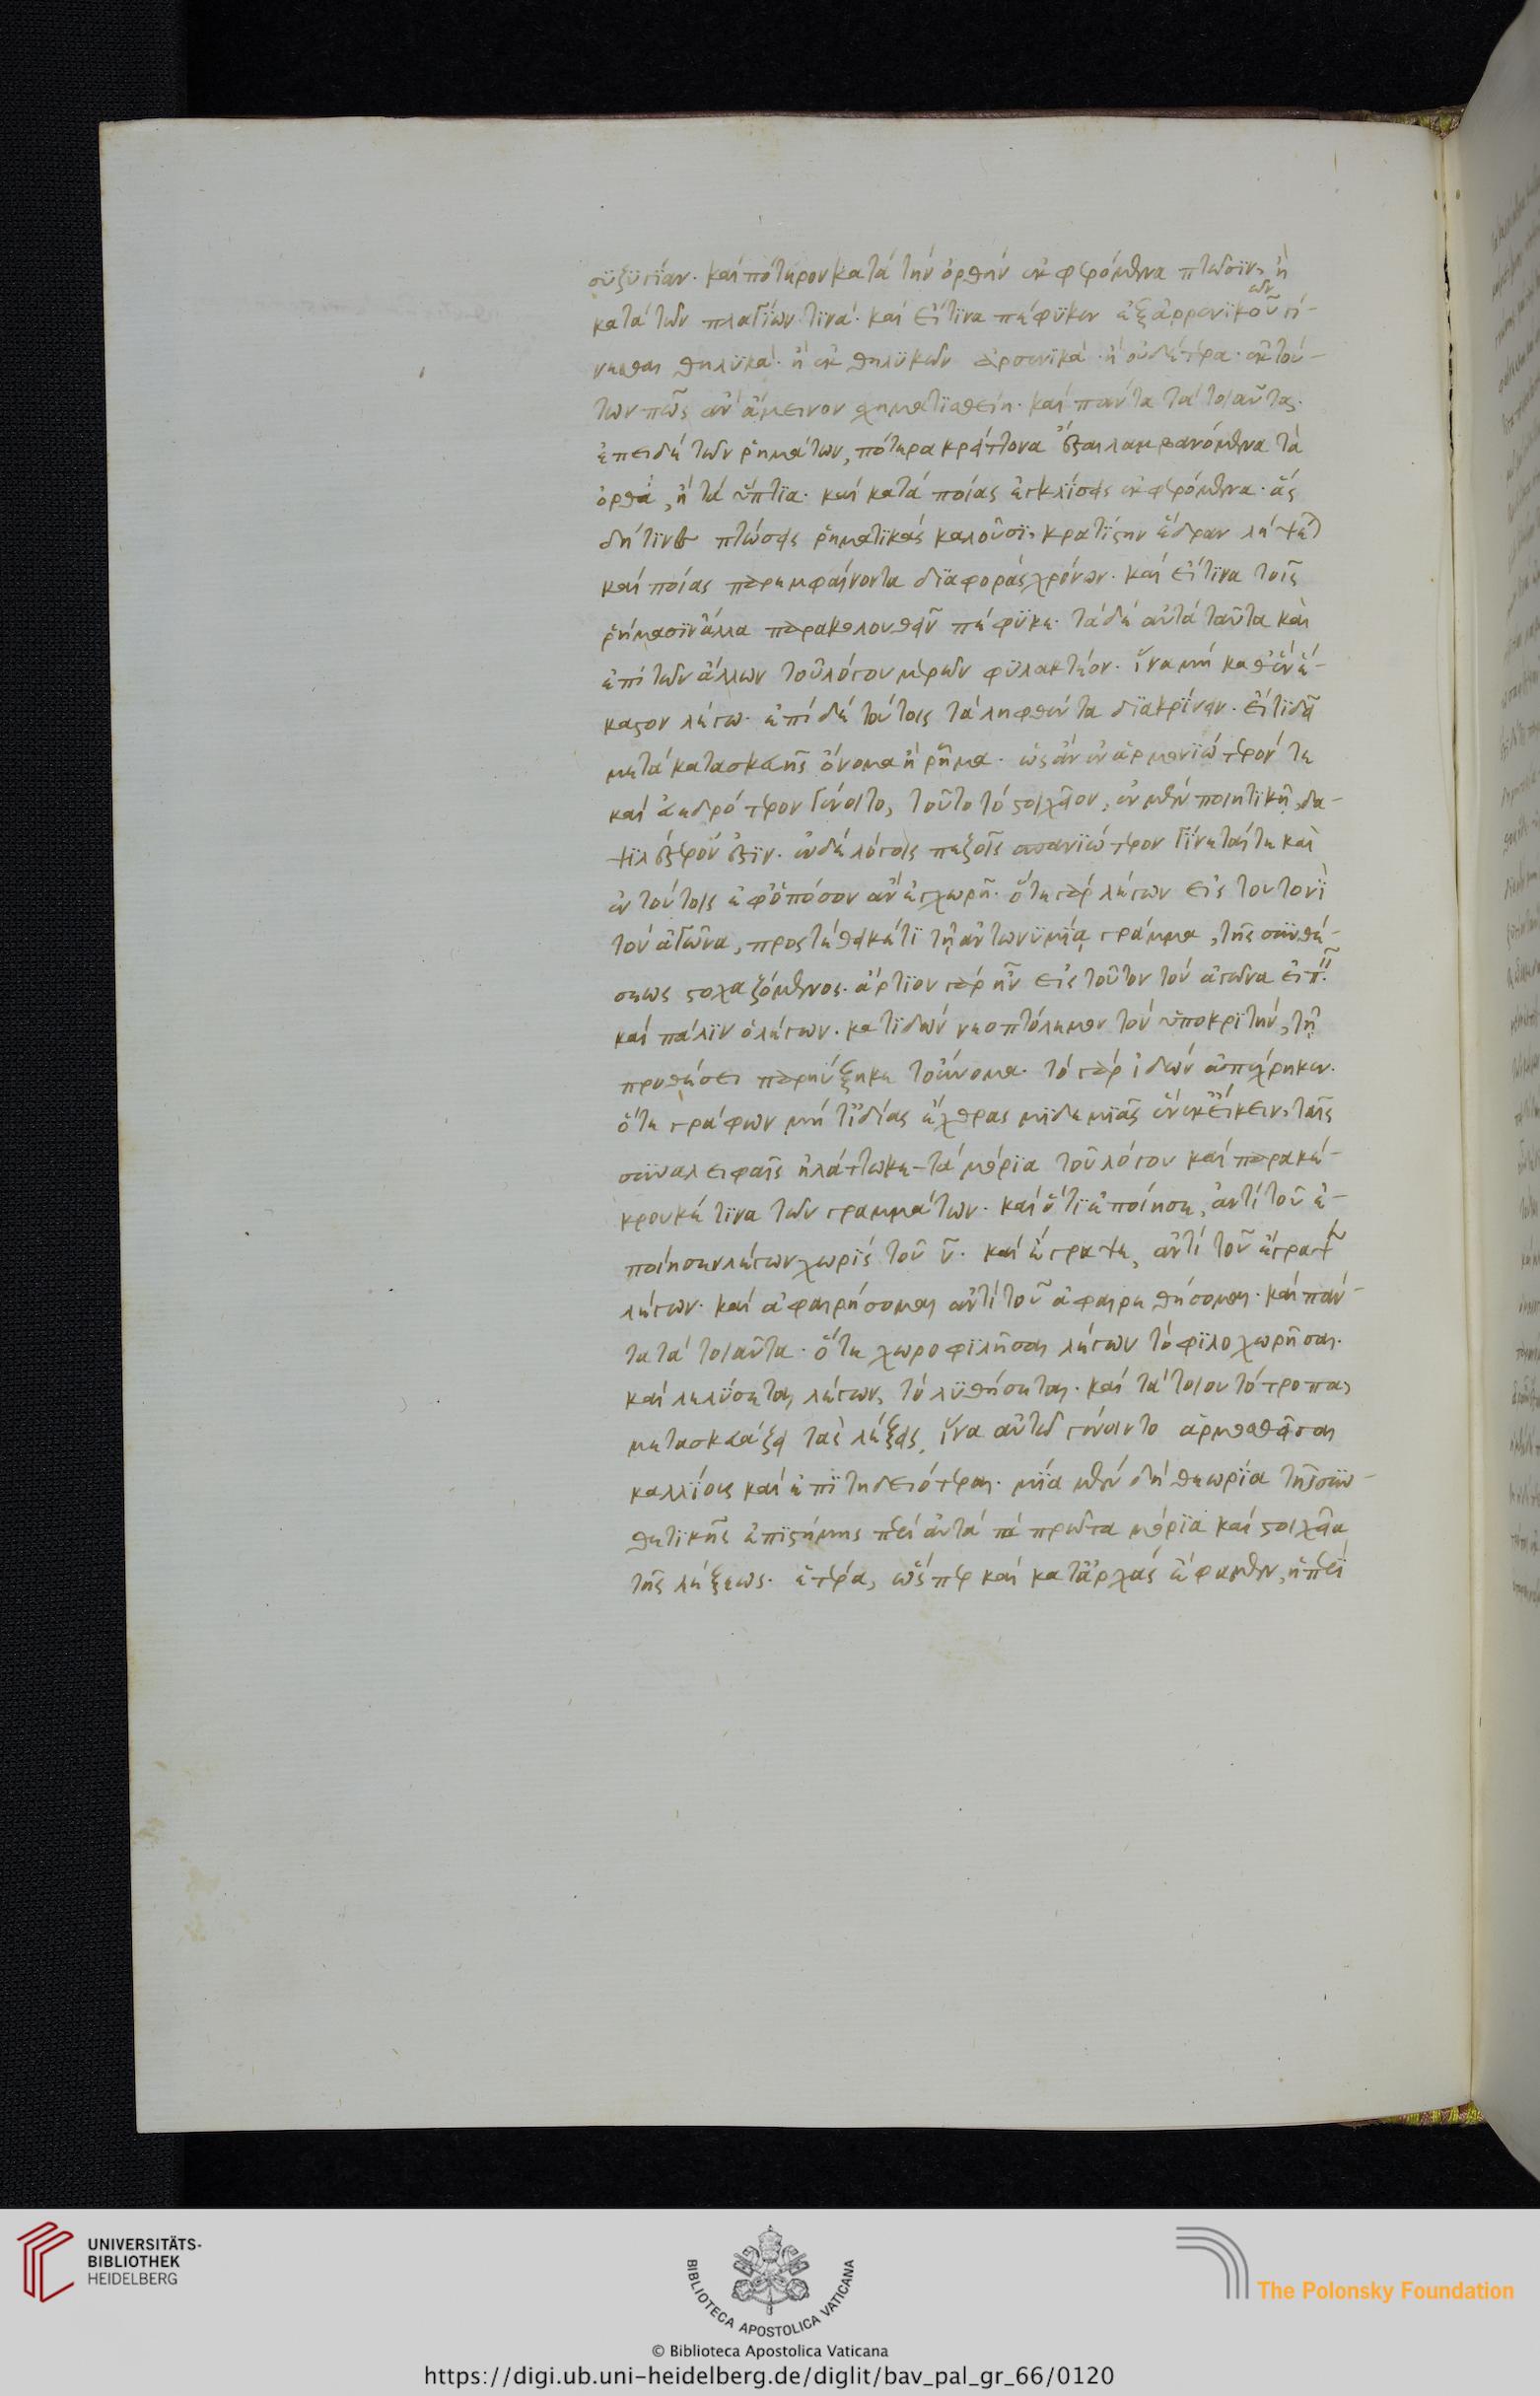 συζυγίαν. καὶ πότερον κατὰ τὴν ὀρθὴν ἐκφερόμενα πτῶσιν, ἢ
κατὰ τῶν πλαγίων τινά. καὶ εἴ τινα πέφυκεν ἐξ ἀρρενικοῦ ων γί-
νεσθαι θηλυκά. ἢ ἐκ θηλυκῶν ἀρσενικά. ἢ οὐδέτερα. ἐκ τού-
των πῶς ἂν ἄμεινον σχηματισθείη. καὶ πάντα τὰ τοιαῦτα.
ἐπειδὴ τῶν ῥημάτων, πότερα κρείττονα ἔσται λαμβανόμενα τὰ
ὀρθά, ἢ τὰ ὕπτια. καὶ κατὰ ποίας ἐγκλίσεις ἐκφερόμενα. ἃς
δή τινες πτώσεις ῥηματικὰς καλοῦσι, κρατίστην ἕδραν λήψεται
καὶ ποίας παρεμφαίνοντα διαφορὰς χρόνων. καὶ εἴ τινα τοῖς
ῥήμασιν ἄλλα παρακολουθεῖν πέφυκε. τὰ δὲ αὐτὰ ταῦτα καὶ
ἐπὶ τῶν ἄλλων τοῦ λόγου μερῶν φυλακτέον. ἵνα μὴ καθ' ἓν ἕ-
καστον λέγω. ἐπὶ δὲ τούτοις τὰ ληφθέντα διακρίνειν. εἴ τι δεῖ
μετὰ κατασκευῆς ὄνομα ἢ ῥῆμα. ὡς ἂν ἐναρμονιώτερόν τε
καὶ ἑεδρότερον γένοιτο, τοῦτο τὸ στοιχεῖον, ἐν μὲν ποιητικῇ, δα-
ψιλέστερόν ἐστιν. ἐν δὲ λόγοις πεζοῖς σπανιώτερον γίνεταί τε καὶ
ἐν τούτοις ἐφ' ὁπόσον ἂν ἐγχωρῇ. ὅτε γὰρ λέγων εἰς τουτονὶ
τὸν ἀγῶνα, προστέθεικέ τι τῇ ἀντωνυμίᾳ γράμμα, τῆς συνθέ-
σεως στοχαζόμενος. ἄρτιον γὰρ ἦν εἰς τοῦτον τὸν ἀγῶνα εἰπεῖν.
καὶ πάλιν ὁ λέγων. κατιδὼν νεοπτόλεμον τὸν ὑποκριτήν, τῇ
προθέσει παρηύξηκε τοὔνομα. τὸ γὰρ ἰδὼν ἀπέχρηκεν.
ὅτε γράφων μὴ τ' ἰδίας ἔχθρας μιδεμιᾶς ἕνεκ' εἵκειν, ταῖς
συναλειφαῖς ἠλάττωκε τὰ μόρια τοῦ λόγου καὶ παρακέ-
κρουκέ τινα τῶν γραμμάτων. καὶ ὅτι ἐποίησε, ἀντὶ τοῦ ἐ-
ποίησεν λέγων χωρὶς τοῦ ν. καὶ ἔγραψε, ἀντὶ τοῦ ἔγραψεν
λέγων. καὶ ἀφαιρήσομαι ἀντὶ τοῦ ἀφαιρεθήσομαι. καὶ πάν-
τα τὰ τοιαῦτα. ὅτε χωροφιλῆσαι λέγων τὸ φιλοχωρῆσαι.
καὶ λελύσεται λέγων, τὸ λυθήσεται. καὶ τὰ τοιουτότροπα,
μετασκευάζει τὰς λέξεις, ἵνα αὐτῷ γένοιντο ἁρμοσθῆναι
καλλίους καὶ ἐπιτηδειότεραι. μία μὲν δὴ θεωρία τῆς συν-
θετικῆς ἐπιστήμης περὶ αὐτὰ τὰ πρῶτα μόρια καὶ στοιχεῖα
τῆς λέξεως. ἑτέρα, ὥσπερ καὶ κατ' ἀρχὰς ἔφαμεν, ἡ περὶ
UNIVERSITÄTS-
BIBLIOTHEK
HEIDELBERG
BIBLIOTECA APOSTOLICA VATICANA
The Polonsky Foundation
© Biblioteca Apostolica Vaticana
https://digi.ub.uni-heidelberg.de/diglit/bav_pal_gr_66/0120